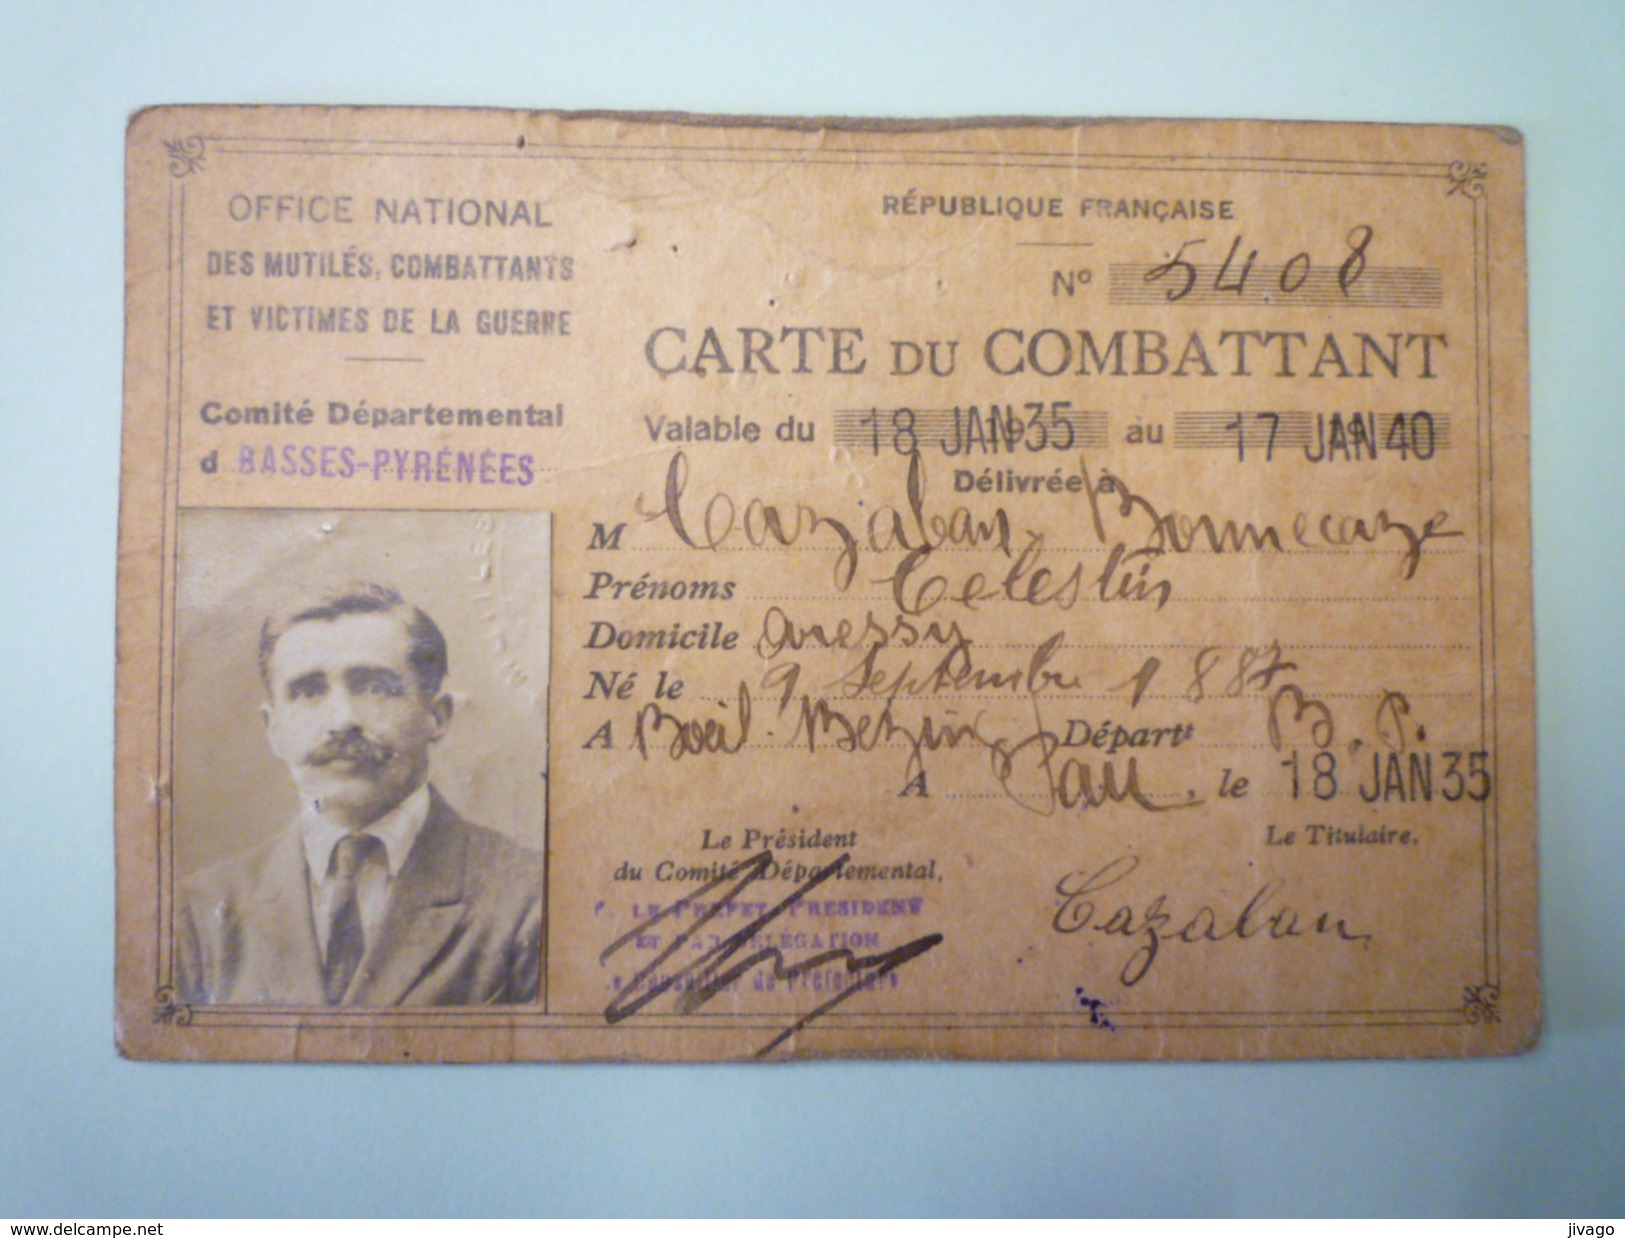 OFFICE NATIONAL
DES MUTILÉS, COMBATTANTS
ET VICTIMES DE LA GUERRE
Comité Départemental
d BASSES-PYRÉNÉES
RÉPUBLIQUE FRANÇAISE
Nº 5408
CARTE DU COMBATTANT
Valable du 18 JAN 35 au 17 JAN 40
Délivrée à
M Cazaban-Bonnecaze
Prénoms Celestin
Domicile Aressy
Né le 9 Septembre 1887
A Boeil-Bezing Départt B.P.
A Pau, le 18 JAN 35
Le Président
du Comité Départemental,
P. LE PREFET, PRESIDENT
ET PAR DÉLÉGATION
Le Conseiller de Préfecture
Le Titulaire,
Cazaban
www.delcampe.net
jivago